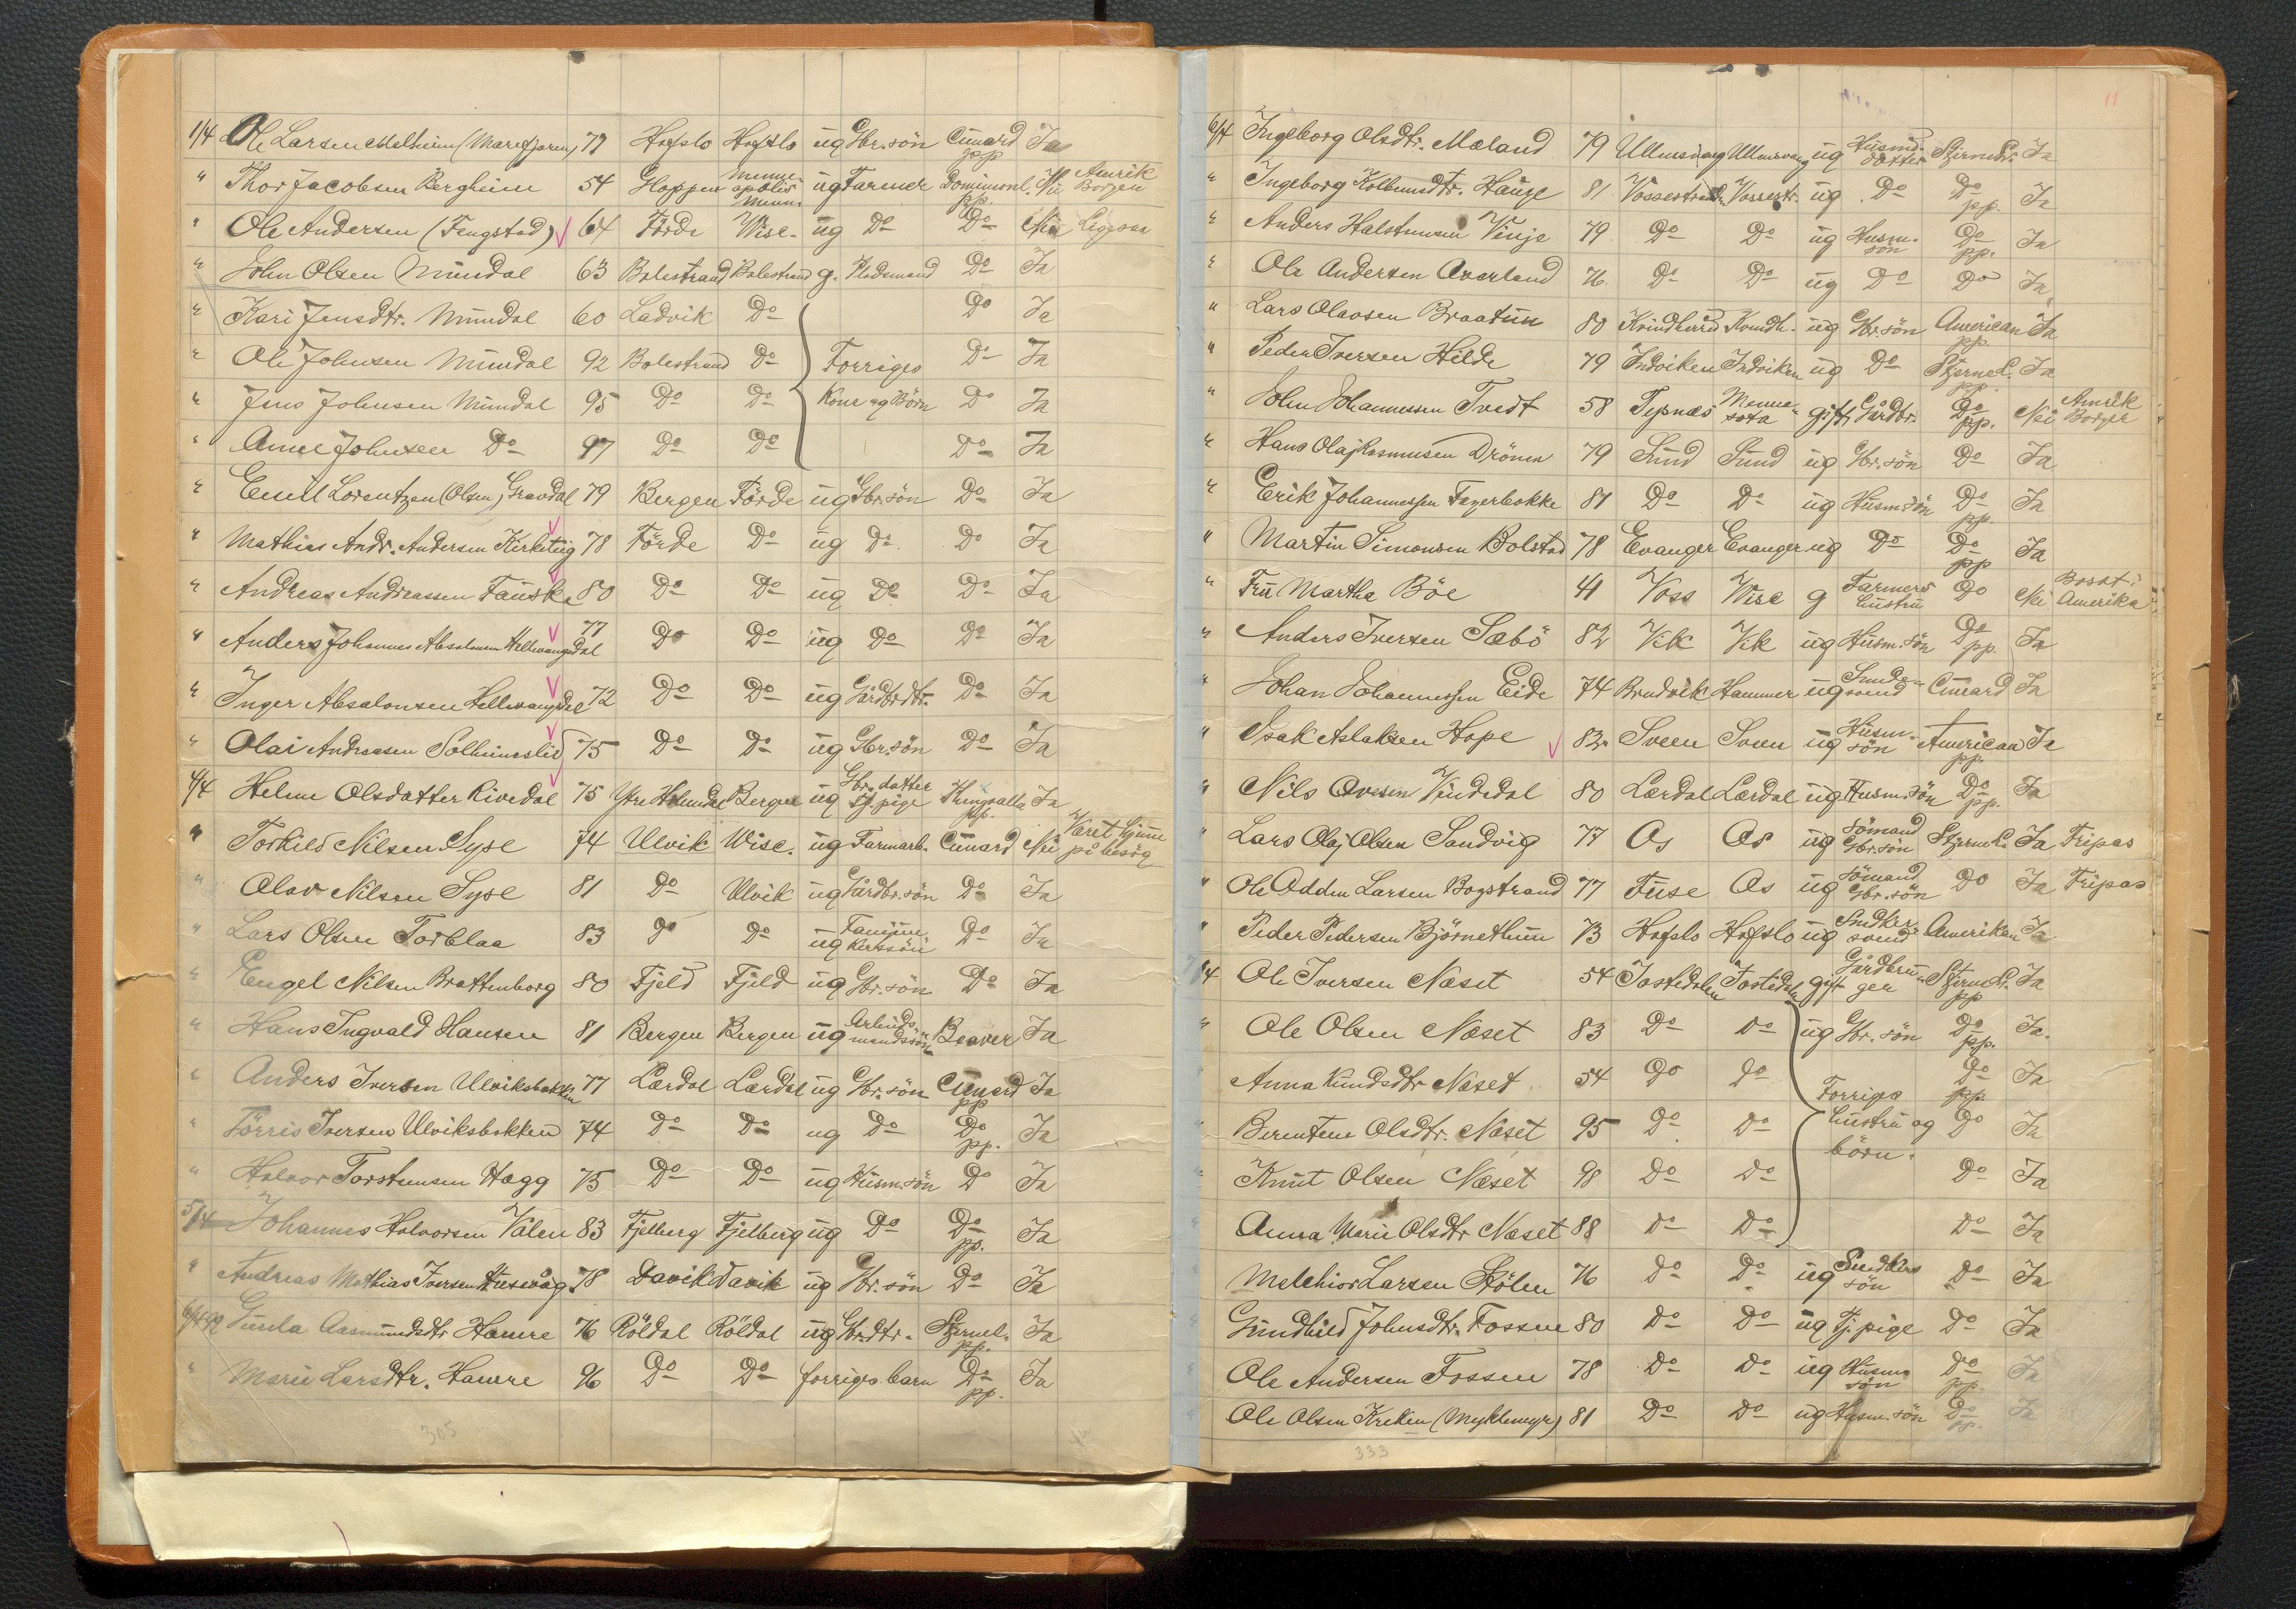 1/4 Ole Larsen Melheim (Marifjæren) 77 Hafslo Hafslo ug Gbr.sön Cunard pp Ja
" Thor Jacobsen Bergheim 54 Gloppen Menneapolis Minn. ug Farmer Dominionl. pp. Nei Amrik Borger
" Ole Andersen (Fengstad) 64 Förde Wisc. ug Do Do Nei Ligesaa
" John Olsen Mundal 63 Balestrand Balestrand g. Pladsmand Do Ja
" Kari Jensdtr. Mundal 60 Ladvik Do Do Ja
" Ole Johnsen Mundal 92 Balestrand Do Forriges Do Ja
" Jens Johnsen Mundal 95 Do Do Kone og Börn Do Ja
" Anne Johnsen Do 97 Do Do Do Ja
" Emil Lorentzen (Olsen) Gravdal 79 Bergen Förde ug Gbr.sön Do Ja
" Mathias Andr. Andersen Kirketeig 78 Förde Do ug Do Do Ja
" Andreas Andreassen Fauske 80 Do Do ug Do Do Ja
" Anders Johannes Absalonsen Hellevangsdal 77 Do Do ug Do Do Ja
" Inger Absalonsen Hellevangsdal 72 Do Do ug Gårdbrdtr. Do Ja
" Olai Andreasen Solheimslid 75 Do Do ug Gbr.sön Do Ja
4/4 Helene Olsdatter Rivedal 75 Ytre Holmedal Bergen ug Gbr.datter Tj.pige Thingvalla pp. Ja
" Torkild Nilsen Syse 74 Ulvik Wisc. ug Farmarb. Cunard Nei Været hjeme på besög
" Olav Nilsen Syse 81 Do Ulvik ug Gårdbr.sön Do Ja
" Lars Olsen Torblaa 83 Do Do ug Do Ja
" Engel Nilsen Brattenborg 80 Fjeld Fjeld ug Gbr.sön Do Ja
" Hans Ingvald Hansen 81 Bergen Bergen ug Arbeidsmandssön Beaver Ja
" Anders Iversen Ulviksbakken 77 Lærdal Lærdal ug Gbr.sön Cunard pp Ja
" Törris Iversen Ulviksbakken 74 Do Do ug Do Do pp. Ja
" Halvor Torstensen Hægg 75 Do Do ug Husm.sön Do Ja
5/4 Johannes Halvorsen Valen 83 Fjelberg Fjelberg ug Do Do pp. Ja
" Andreas Mathias Iversen Husevåg 78 Davik Davik ug Gbr.sön Do Ja
6/4 99 Gunla Aasmundsdtr Havre 76 Röldal Röldal ug Gbrdtr. Stjernel. pp. Ja
" Marie Larsdtr. Havre 96 Do Do forriges barn Do pp. Ja
305
11
6/4 Ingeborg Olsdtr. Mæland 79 Ullensvang Ullensvang ug Husmd. datter Stjernel. Ja
" Ingeborg Kolbensdtr. Hauge 81 Vossestrand Vossestr. ug Do Do pp. Ja
" Anders Halstensen Vinje 79 Do Do ug Husm.sön Do pp. Ja
" Ole Andersen Øverland 76 Do Do ug Do Do Ja
" Lars Olavsen Braatun 80 Kvindherred Kvindh. ug Gbr.sön American pp. Ja
" Peder Iversen Hilde 79 Indviken Indviken ug Do Stjernel. pp. Ja
" John Johannessen Tvedt 58 Tysnæs Mennesota gift Gårdbr. Do pp. Nei Amrik Borger
" Hans Olaj Rasmusen Drönen 79 Sund Sund ug Gbr.sön Do Ja
" Erik Johannessen Fagerbakke 81 Do Do ug Husm.sön Do pp. Ja
" Martin Simonsen Bolstad 78 Evanger Evanger ug Do Do pp Ja
" Fru Martha Böe 41 Voss Wisc g Farmers hustru Do Nei Bosat i Amerika
" Anders Iversen Sæbö 82 Vik Vik ug Husm.sön Do pp. Ja
" Johan Johannessen Eide 74 Bruvik Hammer ug Cunard Ja
" Isak Aslaksen Hope 82 Sveen Sveen ug Husm.sön American pp. Ja
" Nils Ovesen Vindedal 80 Lærdal Lærdal ug Husm.sön Do pp. Ja
" Lars Olaj Olsen Sandvig 77 Os Os ug Sömand Gbr.sön Stjernel. Ja Fripas
" Ole Odden Larsen Bogstrand 77 Fuse Os ug Sömand Gbr.sön Do Ja Fripas
" Peder Pedersen Björnethun 73 Hafslo Hafslo ug Snedkersvend Amerikan Ja
7/4 Ole Iversen Næset 54 Jostedalen Jostedalen gift Gårdbruger Stjernel. pp Ja
" Ole Olsen Næset 83 Do Do ug Gbr.sön Do pp. Ja.
Anna Knudsdtr Næset 54 Do Do Forriges Do pp. Ja
" Berentene Olsdtr. Næset 95 Do Do hustru og Do Ja
" Knut Olsen Næset 98 Do Do börn. Do Ja
" Anna Marie Olsdtr Næset 88 Do Do Do Ja
Melchior Larsen Stölen 76 Do Do ug Snedkers sön Do Ja
Gundhild Johnsdtr. Fossen 80 Do Do ug Tj.pige Do Ja
Ole Andersen Fossen 78 Do Do ug Husm.sön Do pp Ja
Ole Olsen Kreken (Myklemyr) 81 Do Do ug Husm.sön Do pp. Ja
333